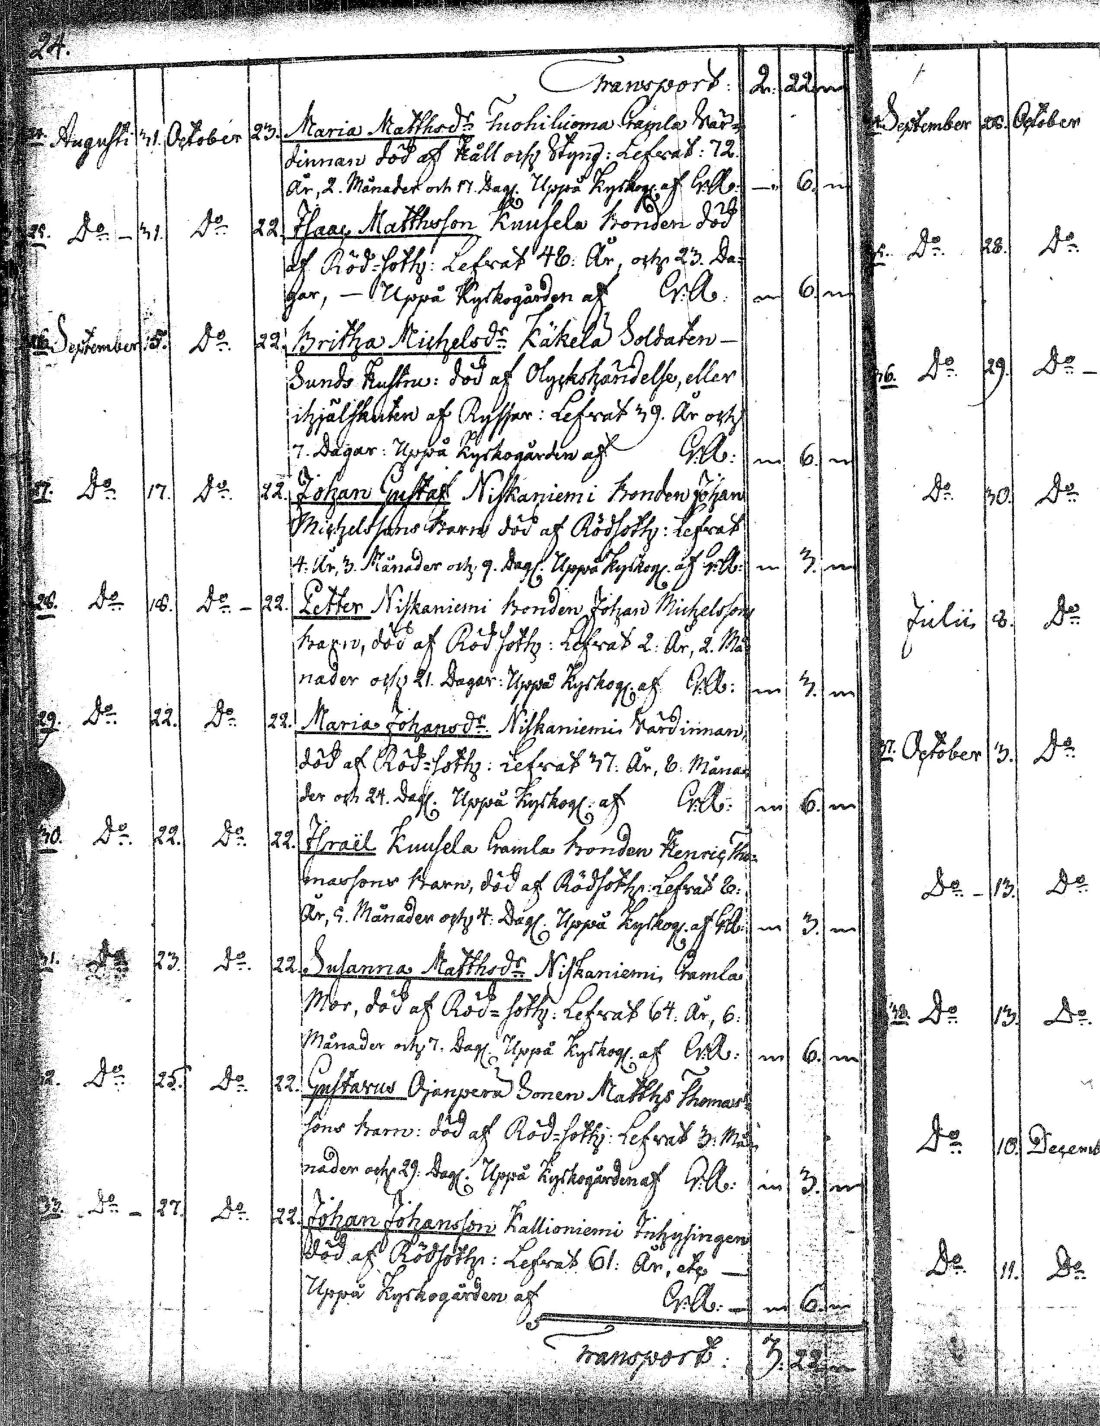 24.
Transport: 2. 22. "
24. Augusti 31. October 23. Maria Matthsdr Tuohiluoma Gamla Wär=
dinnan död af Håll och Styng: Lefvat: 72.
År, 2. Månader och 17. Dag. Uppå Kyrkog. af Gr.A: — 6. "
25. Do — 31. Do 22. Isaac Matthsson Knusela Bonden död
af Röd=Soth: Lefvat 48: År, och 23. Da=
gar, — Uppå Kyrkogården af Gr.A: " 6. "
26. September 5. Do 22. Britha Michelsdr Käkelä Soldaten —
Sunds Hustru: död af Olyckshändelse, eller
ihjälskuten af Ryssar: Lefvat 39. År och
7. Dagar: Uppå Kyrkogården af Gr.A: " 6. "
27. Do 17. Do 22. Johan Gustaf Niskaniemi Bonden Johan
Michelssons Barn, död af Rödsoth: Lefvat
4. År, 3. Månader och 9. Dag. Uppå Kyrkog. af Gr.A: " 3. "
28. Do 18. Do — 22. Petter Niskaniemi Bonden Johan Michelssons
Barn, död af Rödsoth: Lefvat 2: År, 2. Må=
nader och 21. Dagar: Uppå Kyrkog. af Gr.A: " 3. "
29. Do 22. Do 22. Maria Johansdr Niskaniemi Wärdinnan,
död af Röd=soth: Lefvat 37: År, 8: Måna=
der och 24. Dag. Uppå Kyrkog: af Gr.A: " 6. "
30. Do 22. Do 22. Israël Knusela Gamla Bonden Henric Tho=
massons Barn, död af Rödsoth: Lefvat 8:
År, 5. Månader och 4: Dag. Uppå Kyrkog. af Gr.A: " 3. "
31. Do 23. Do 22. Susanna Matthsdr Niskaniemi, Gamla
Mor, död af Röd=soth: Lefvat 64: År, 6:
Månader och 7. Dag. Uppå Kyrkog. af Gr.A: " 6. "
32. Do 25. Do 22. Gustavus Ojanperä Sonen Matths Thomas=
sons Barn: död af Röd=soth: Lefvat 3: Må=
nader och 29. Dag. Uppå Kyrkogården af Gr.A: " 3. "
33. Do — 27. Do 22. Johan Johansson Kallioniemi Inhysingen
död af Rödsoth: Lefvat 61: År, etc —
Uppå Kyrkogården af Gr.A: — " 6. "
Transport: 3. 22. "
September 28. October
35. Do 28. Do
36. Do 29. Do —
Do 30. Do
Julii 8. Do
37. October 3. Do
Do — 13. Do
38. Do 13. Do
Do 10. Decemb
Do 11. Do